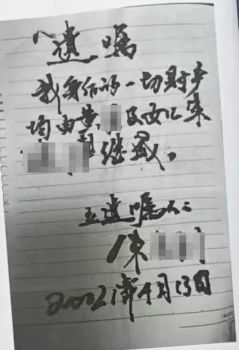 遗嘱
我身后的一切财产
均由黄 及女儿朱
继承。
立遗嘱人
朱
20021年4月13日